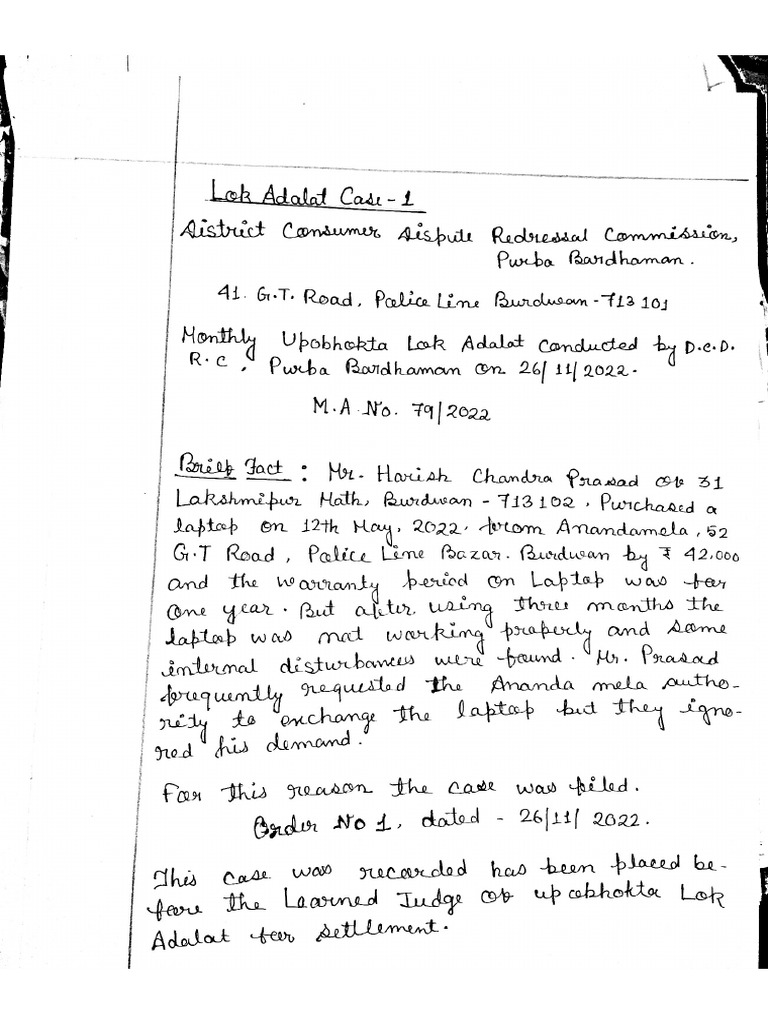 Lok Adalat Case - 1
District Consumer Dispute Redressal Commission,
Purba Bardhaman.
41. G.T. Road, Police Line Burdwan - 713101
Monthly Upobhokta Lok Adalat conducted by D.C.D.
R.C, Purba Bardhaman on 26/11/2022.
M.A No. 79/2022
Brief Fact : Mr. Harish Chandra Prasad of 31
Lakshmipur Math, Burdwan - 713102, Purchased a
laptop on 12th May, 2022, from Anandamela, 52
G.T Road, Police Line Bazar. Burdwan by ₹ 42,000
and the warranty period on Laptop was for
one year. But after using three months the
laptop was not working properly and some
internal disturbances were found. Mr. Prasad
frequently requested the Ananda mela autho-
rity to exchange the laptop but they igno-
red his demand.
For this reason the case was filed.
Order No 1, dated - 26/11/2022.
This case was recorded has been placed be-
fore the Learned Judge of upobhokta Lok
Adalat for settlement.